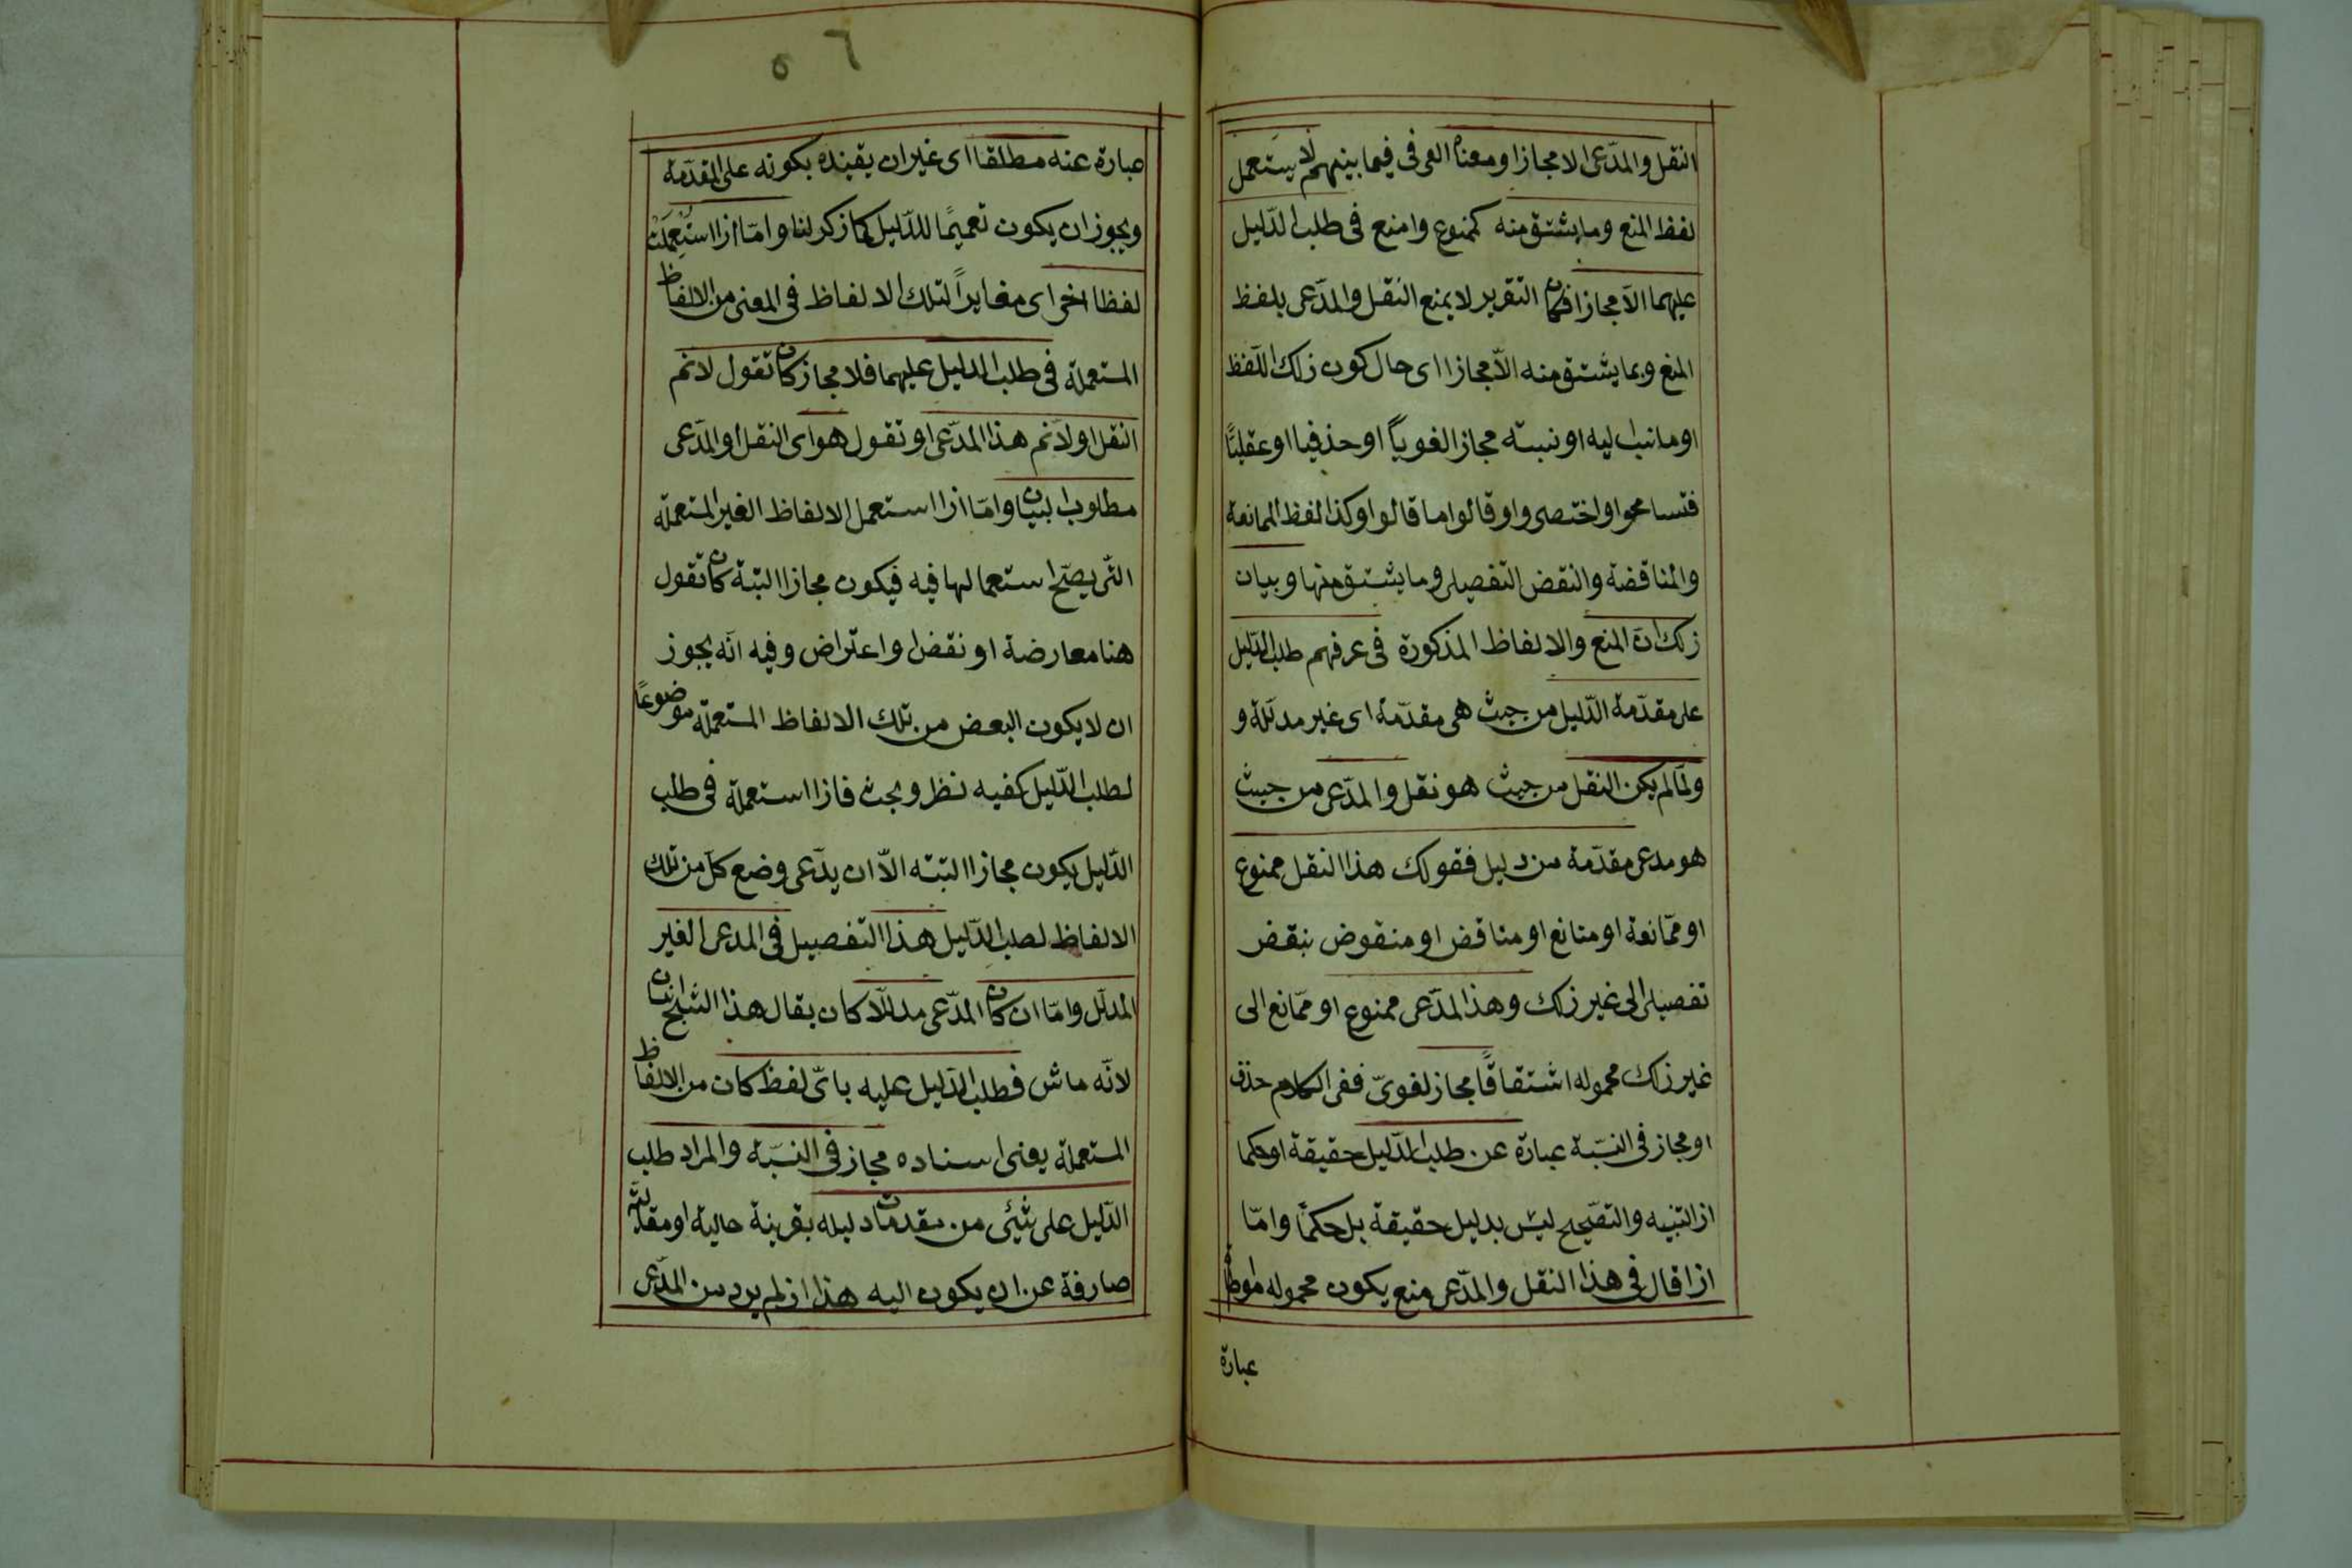 النقل والمدّعى الا مجازا ومعناه العرفى فيما بينهم لا يستعمل
لفظ المنع وما يشتق منه كممنوع وامنع فى طلب الدّليل
عليهما الّا مجازا فكان التقرير لا يمنع النقل والمدّعى بلفظ
المنع وبما يشتق منه الّا مجازا اى حال كون ذلك اللّفظ
او ما نسب اليه او نسبته مجازا لغوياً او حذفيا او عقليًّا
فتسامحوا واختصروا وقالوا ما قالوا وكذا لفظ الممانعة
والمناقضة والنقض التفصيلى وما يشتق منها وبيان
ذلك انّ المنع والالفاظ المذكورة فى عرفهم طلب الدّليل
على مقدّمة الدّليل من حيث هى مقدّمة اى غير مدلّلة و
ولمّا لم يكن النقل من حيث هو نقل والمدّعى من حيث
هو مدعى مقدّمة من دليل فقولك هذا النقل ممنوع
او ممّانعة او مناقض او منقوض بنقض
تفصيلى الى غير ذلك وهذا المدّعى ممنوع او ممّانع الى
غير ذلك محموله اشتقاقًا مجاز لغوىّ ففى الكلام حذف
او مجاز فى النسّبة عبارة عن طلب الدّليل حقيقة او حكما
اذ التنبيه والتصحيح ليس بدليل حقيقة بل حكمًا وامّا
اذا قال فى هذا النقل والمدّعى منع يكون محموله
عبارة
٥٦
عبارة عنه مطلقا اى غير ان يقيده بكونه على المقدّمة
ويجوز ان يكون تعميمًا للدّليل كما ذكر لنا وامّا اذا استُعمِلَتْ
لفظا اخر اى مغايراً لتلك الالفاظ فى المعنى من الالفاظ
المستعملة فى طلب الدليل عليهما فلا مجاز كان تقول لا نم
النقل او لا نم هذا المدّعى او تقول هو اى النقل او المدّعى
مطلوب البيان وامّا اذا استعمل الالفاظ الغير المستعملة
التى يصحّ استعمالها فيه فيكون مجازا البتة كان تقول
هنا معارضة او نقض او اعتراض وفيه انّه يجوز
ان لا يكون البعض من تلك الالفاظ المستعملة موضوعًا
لطلب الدّليل كفيه نظر وبحث فاذا استعملة فى طلب
الدّليل يكون مجازا البتته الّا ان يدّعى وضع كلّ من تلك
الالفاظ لطلب الدّليل هذا التفصيل فى المدعى الغير
المدلّل وامّا ان كان المدّعى مدلّلا كان يقال هذا الشبح انسان
لانّه ماش فطلب الدّليل عليه باىّ لفظ كان من الالفاظ
المستعملة يعنى اسناده مجاز فى النسّبة والمراد طلب
الدّليل على شيئ من مقدمات دليله بقرينة حالية او مقالية
صارفة عن ان يكون اليه هذا اذ لم يرد من المدّعى